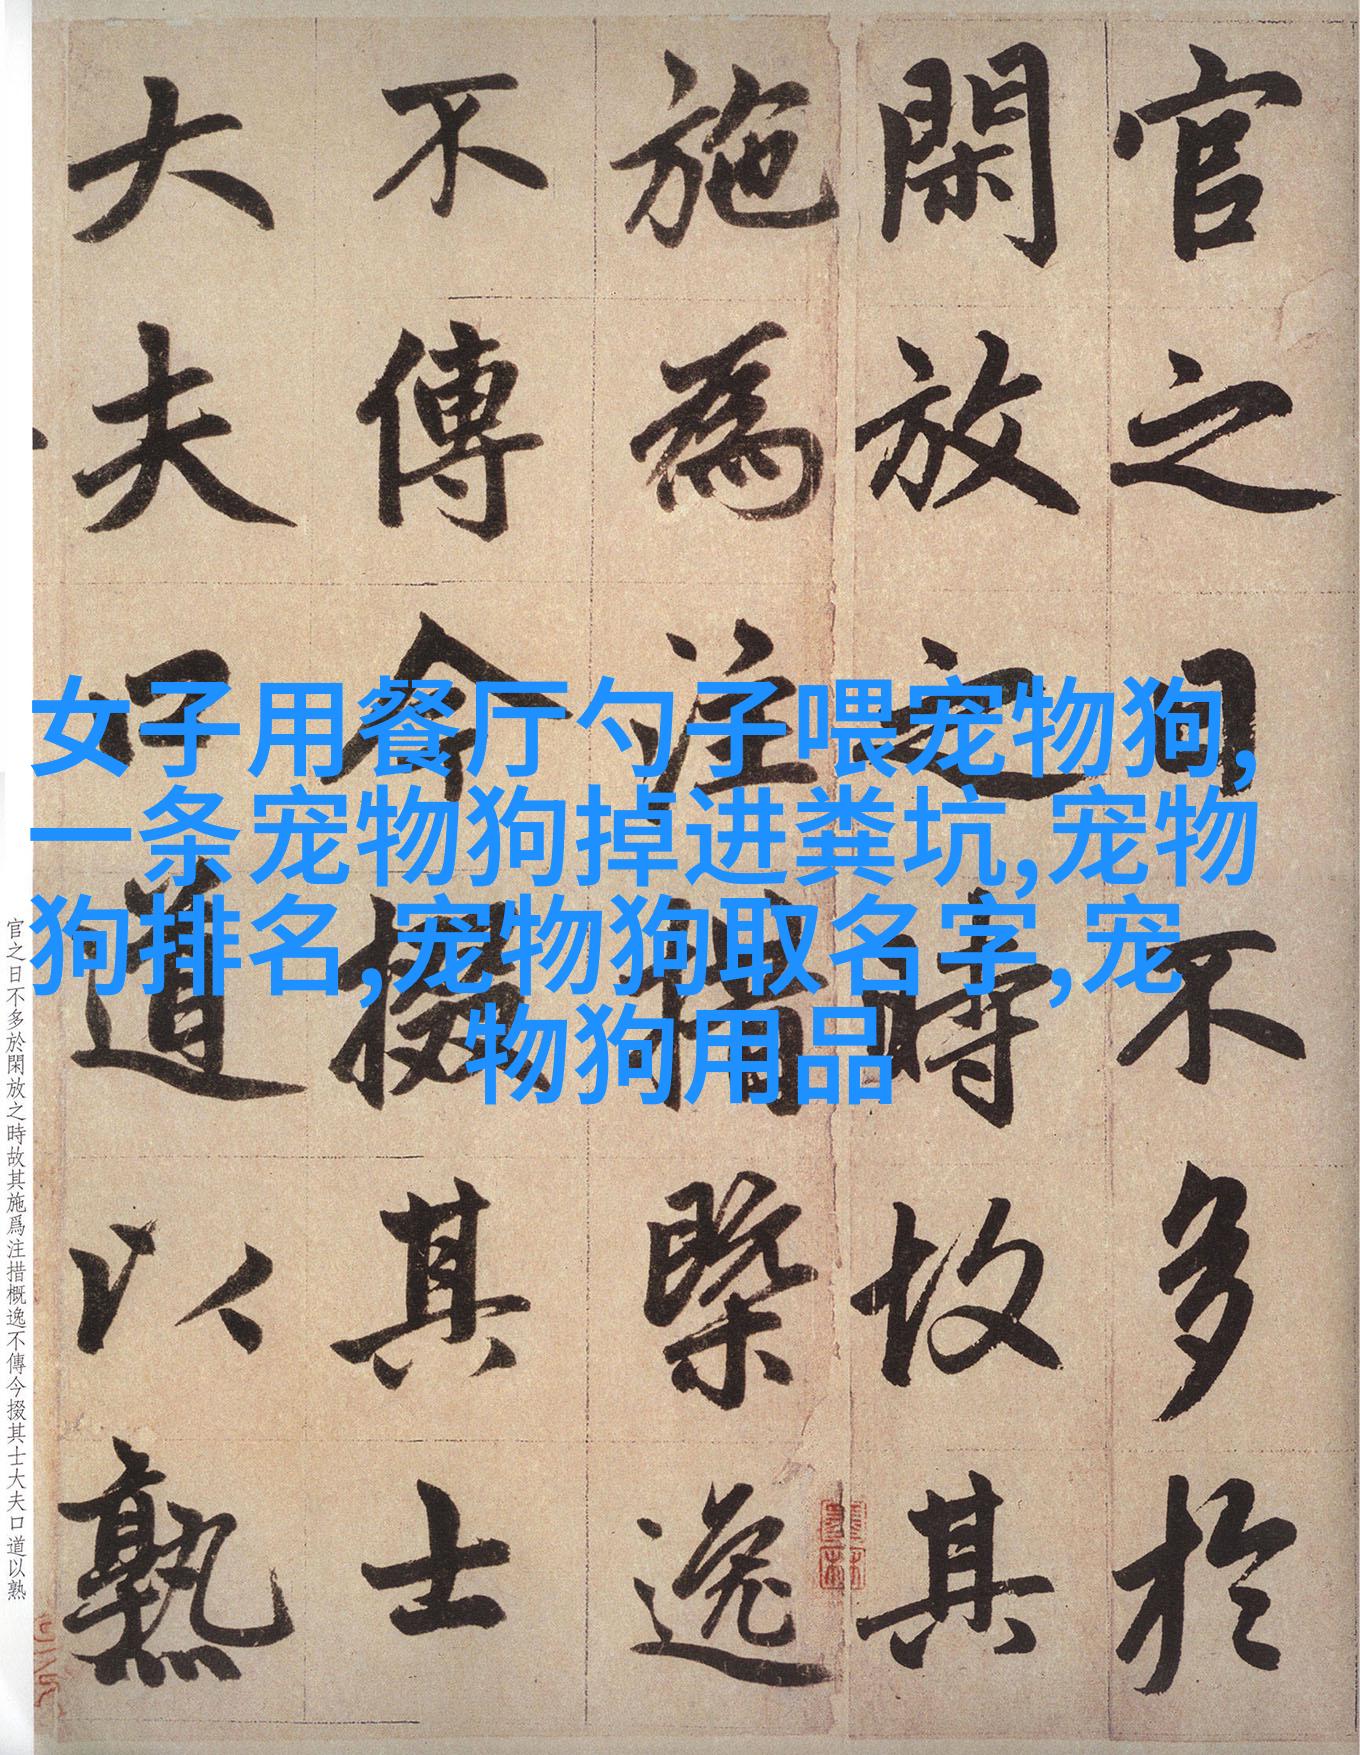 官之日不多於
閑放之時故其
施為注措槩逸
不傳今掇其士
大夫口道以熟
女子用餐厅勺子喂宠物狗,
一条宠物狗掉进粪坑,宠物
狗排名,宠物狗取名字,宠
物狗用品
官之日不多於閑放之時故其施爲注措概逸不傳今掇其士大夫口道以熟